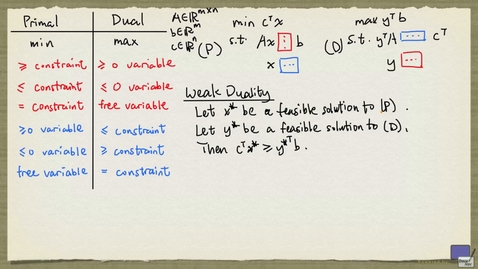 Primal Dual
min max
≥ constraint ≥ 0 variable
≤ constraint ≤ 0 variable
= constraint free variable
≥0 variable ≤ constraint
≤0 variable ≥ constraint
free variable = constraint
A∈ℝᵐˣⁿ
b∈ℝᵐ
c∈ℝⁿ
(P) min cᵀx
s.t. Ax ⋮ b
x ⋯
(D) max yᵀb
s.t. yᵀA ⋯ cᵀ
y ⋯
Weak Duality
Let x* be a feasible solution to (P).
Let y* be a feasible solution to (D).
Then cᵀx* ≥ y*ᵀb.